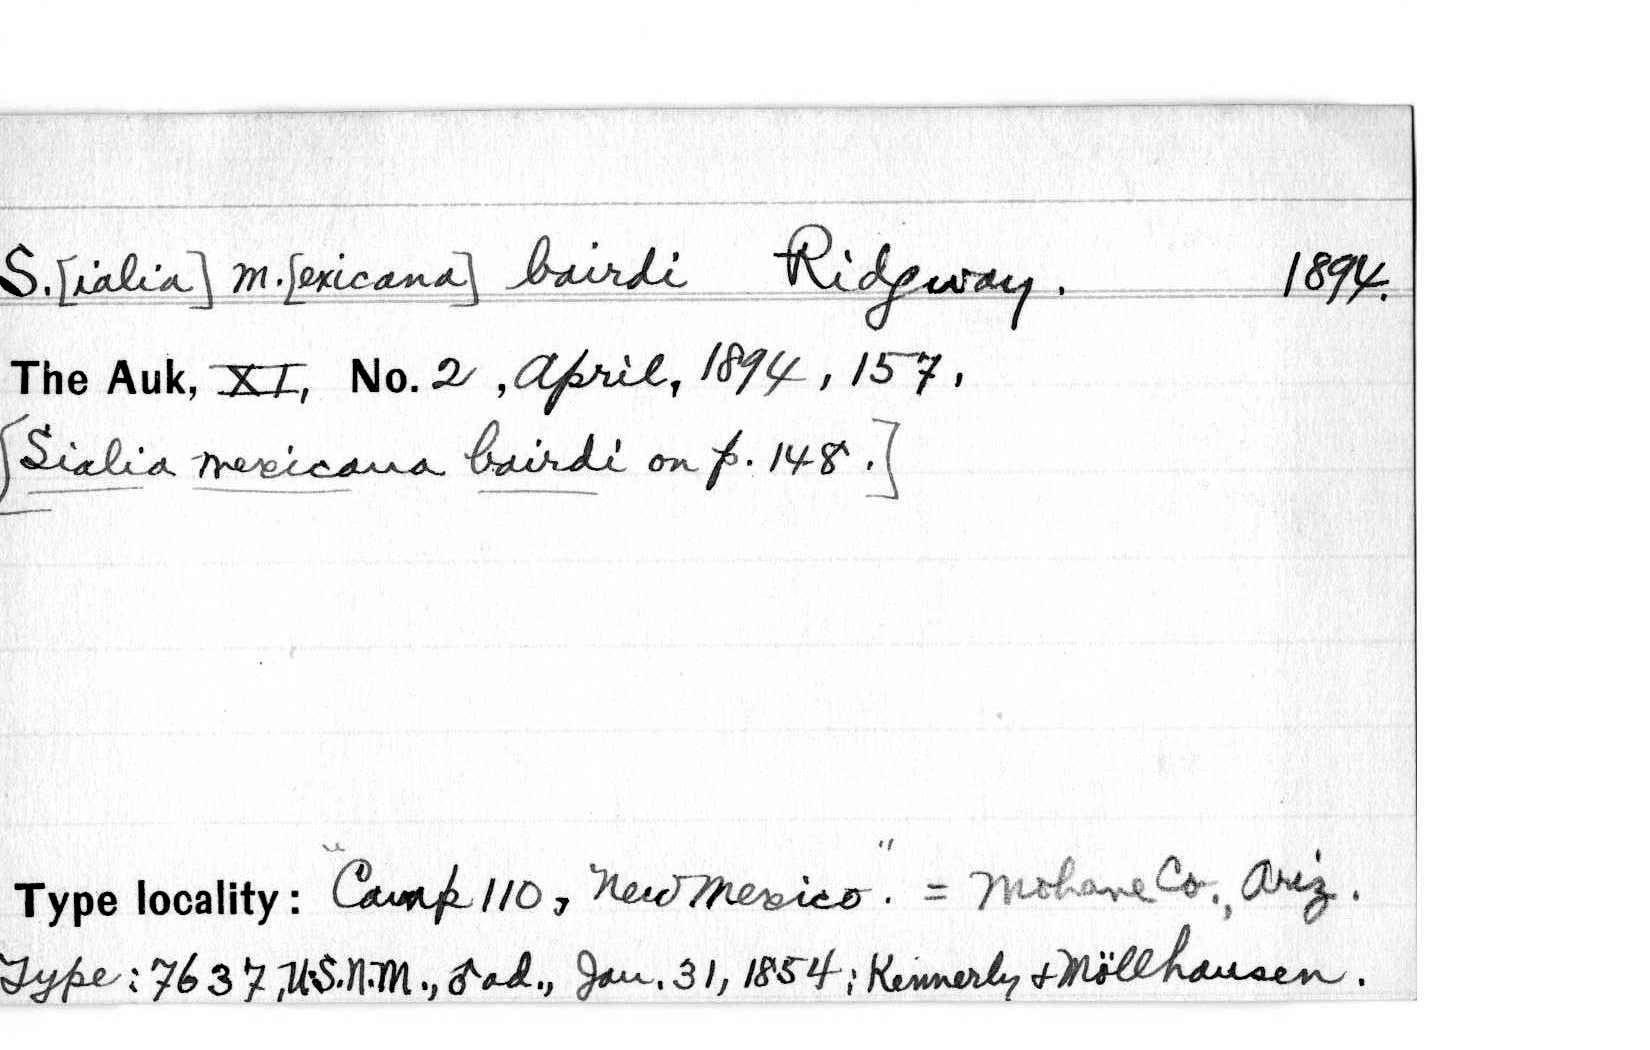 S.[ialia] m.[exicana] bairdi Ridgway. 1894.
The Auk, XI, No. 2, April, 1894, 157.
[Sialia mexicana bairdi on p. 148.]
Type locality: "Camp 110, New Mexico". = Mohave Co., Ariz.
Type: 7637, U.S.N.M., ♂ ad., Jan. 31, 1854; Kennerly & Möllhausen.